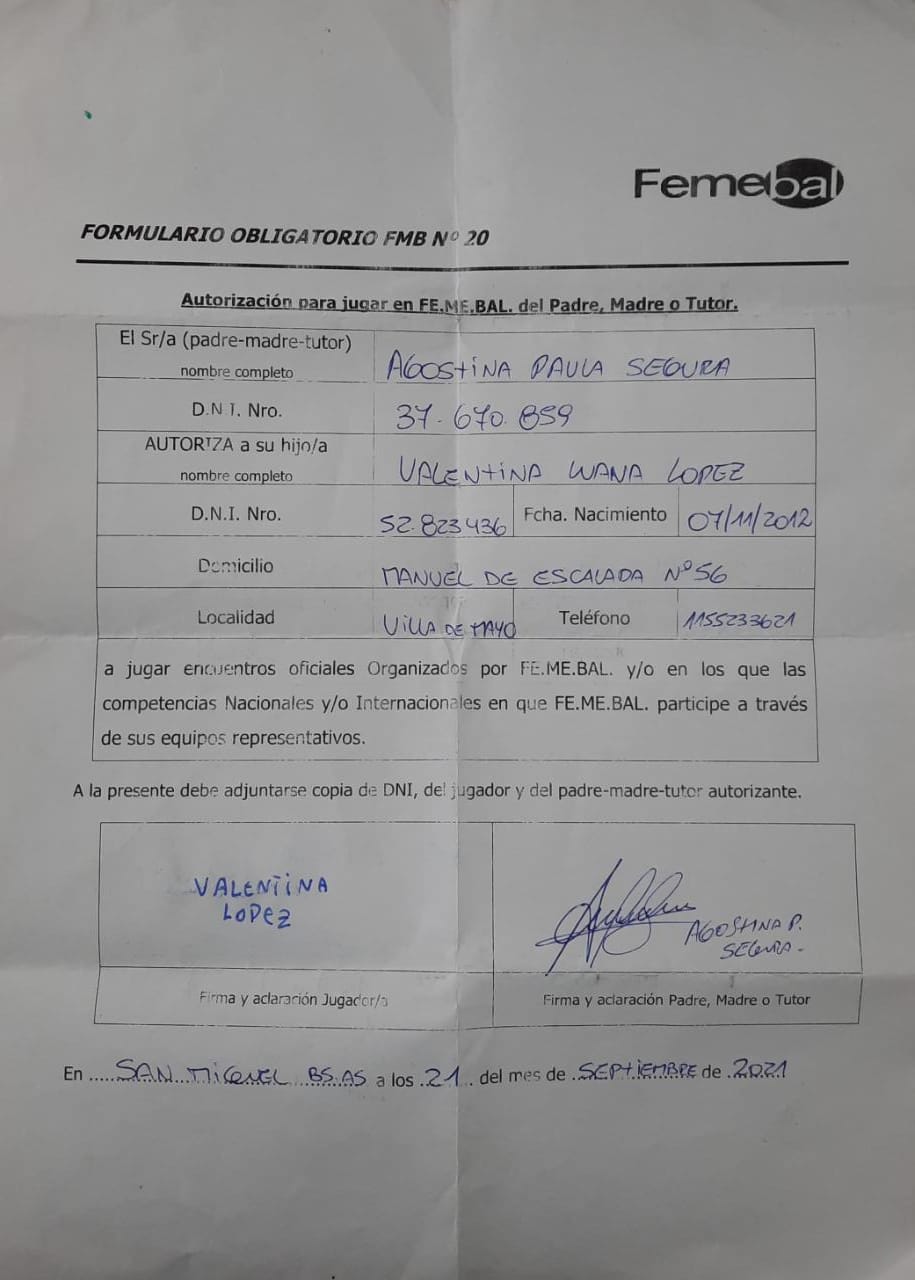 Femebal
FORMULARIO OBLIGATORIO FMB Nº 20
Autorización para jugar en FE.ME.BAL. del Padre, Madre o Tutor.
El Sr/a (padre-madre-tutor)
nombre completo
AGOSTINA PAULA SEGURA
D.N.I. Nro.
37.670.859
AUTORIZA a su hijo/a
nombre completo
VALENTINA LUANA LOPEZ
D.N.I. Nro.
52.823.436
Fcha. Nacimiento
07/11/2012
Domicilio
MANUEL DE ESCALADA Nº 56
Localidad
VILLA DE MAYO
Teléfono
1155233621
a jugar encuentros oficiales Organizados por FE.ME.BAL. y/o en los que las
competencias Nacionales y/o Internacionales en que FE.ME.BAL. participe a través
de sus equipos representativos.
A la presente debe adjuntarse copia de DNI, del jugador y del padre-madre-tutor autorizante.
VALENTINA
LOPEZ
AGOSTINA P.
SEGURA-
Firma y aclaración Jugador/a
Firma y aclaración Padre, Madre o Tutor
En ..... SAN MIGUEL BS.AS a los .21.. del mes de .SEPTIEMBRE de .2021